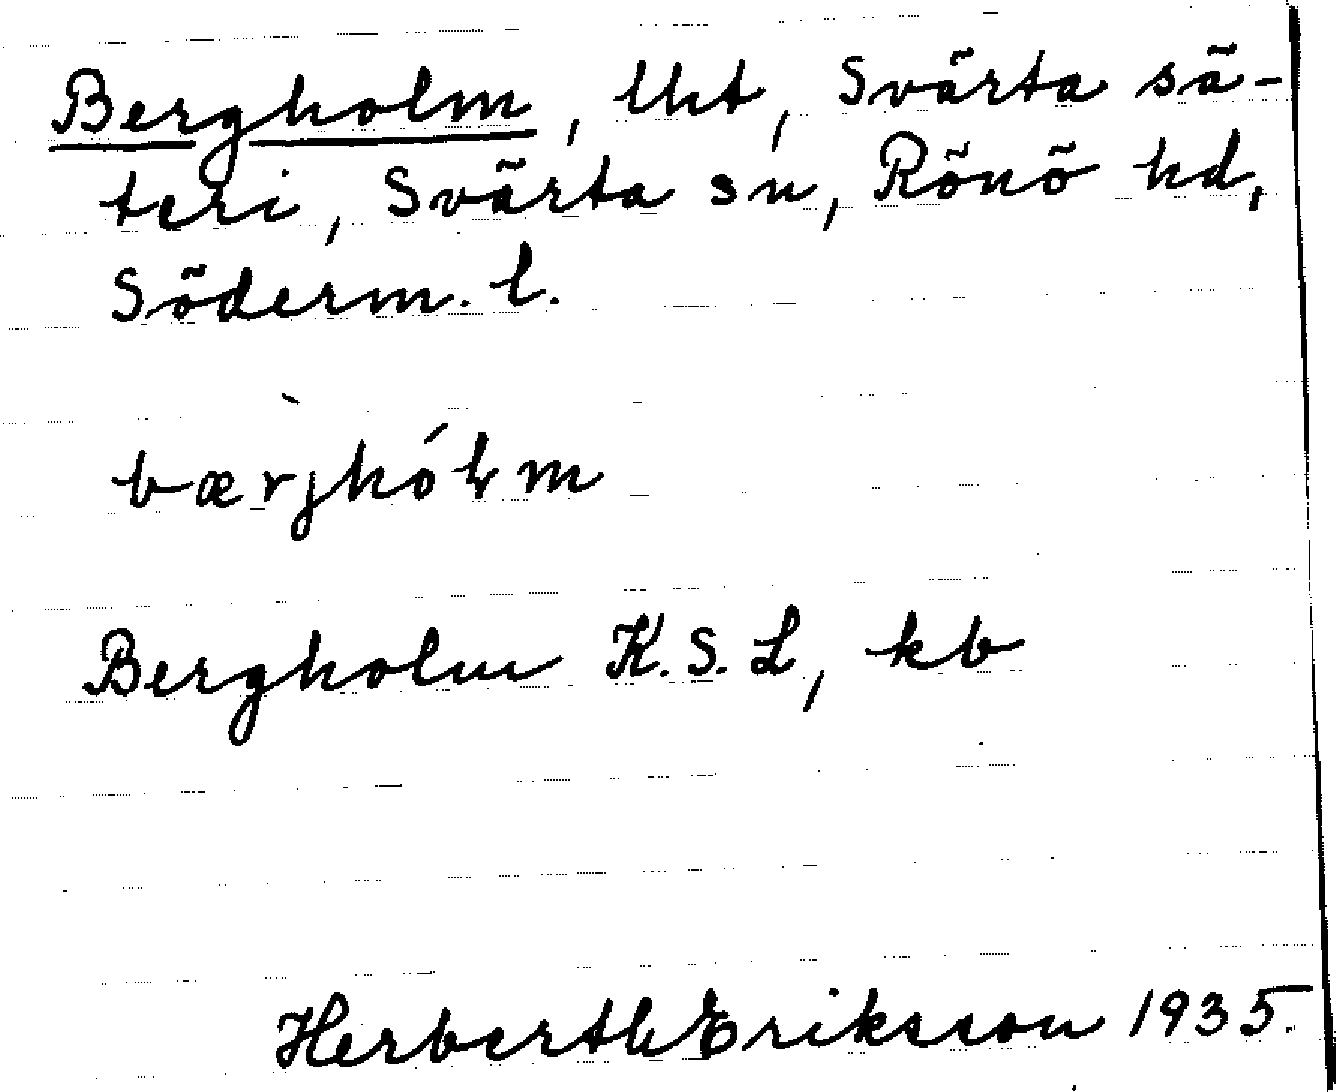 Bergholm, lht, Svärta sä-
teri, Svärta sn, Rönö hd,
Söderm. l.
bærjhólm
Bergholm K.S.L, kb
Herberth Eriksson 1935.